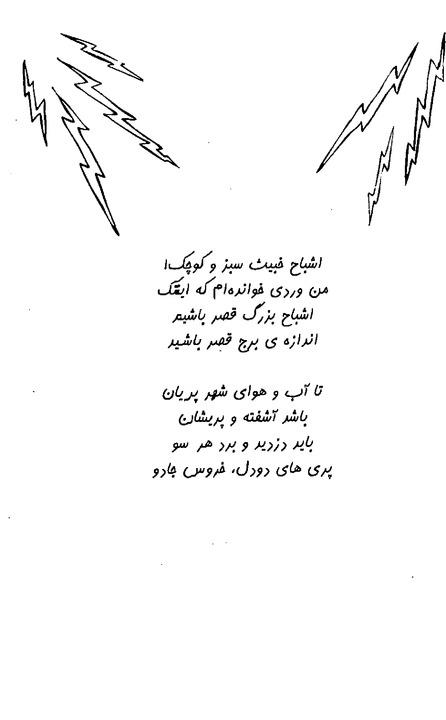 اشباح خبیث سبز و کوچک!
من وردی خوانده‌ام که اینک
اشباح بزرگ قصر باشیم
اندازه ی برج قصر باشید
تا آب و هوای شهر پریان
باشد آشفته و پریشان
باید دزدید و برد هر سو
پری های دودل، خروس جادو